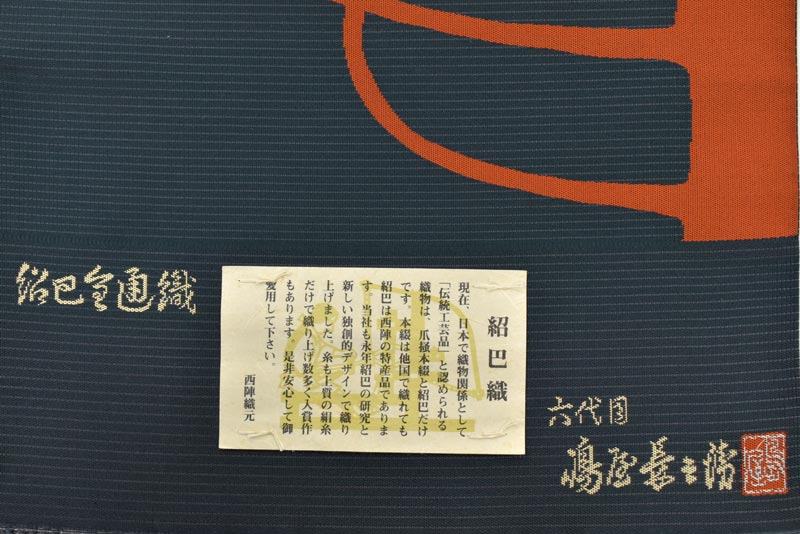 紹巴全通織
紹巴織
現在、日本で織物関係として
「伝統工芸品」と認められる
織物は、爪掻本綴と紹巴だけ
です。本綴は他国で織れても
紹巴は西陣の特産品でありま
す。当社も永年紹巴の研究と
新しい独創的デザインで織り
上げました。糸も上質の絹糸
だけで織り上げ数多く入賞作
もあります。是非安心して御
愛用して下さい。
西陣織元
六代目